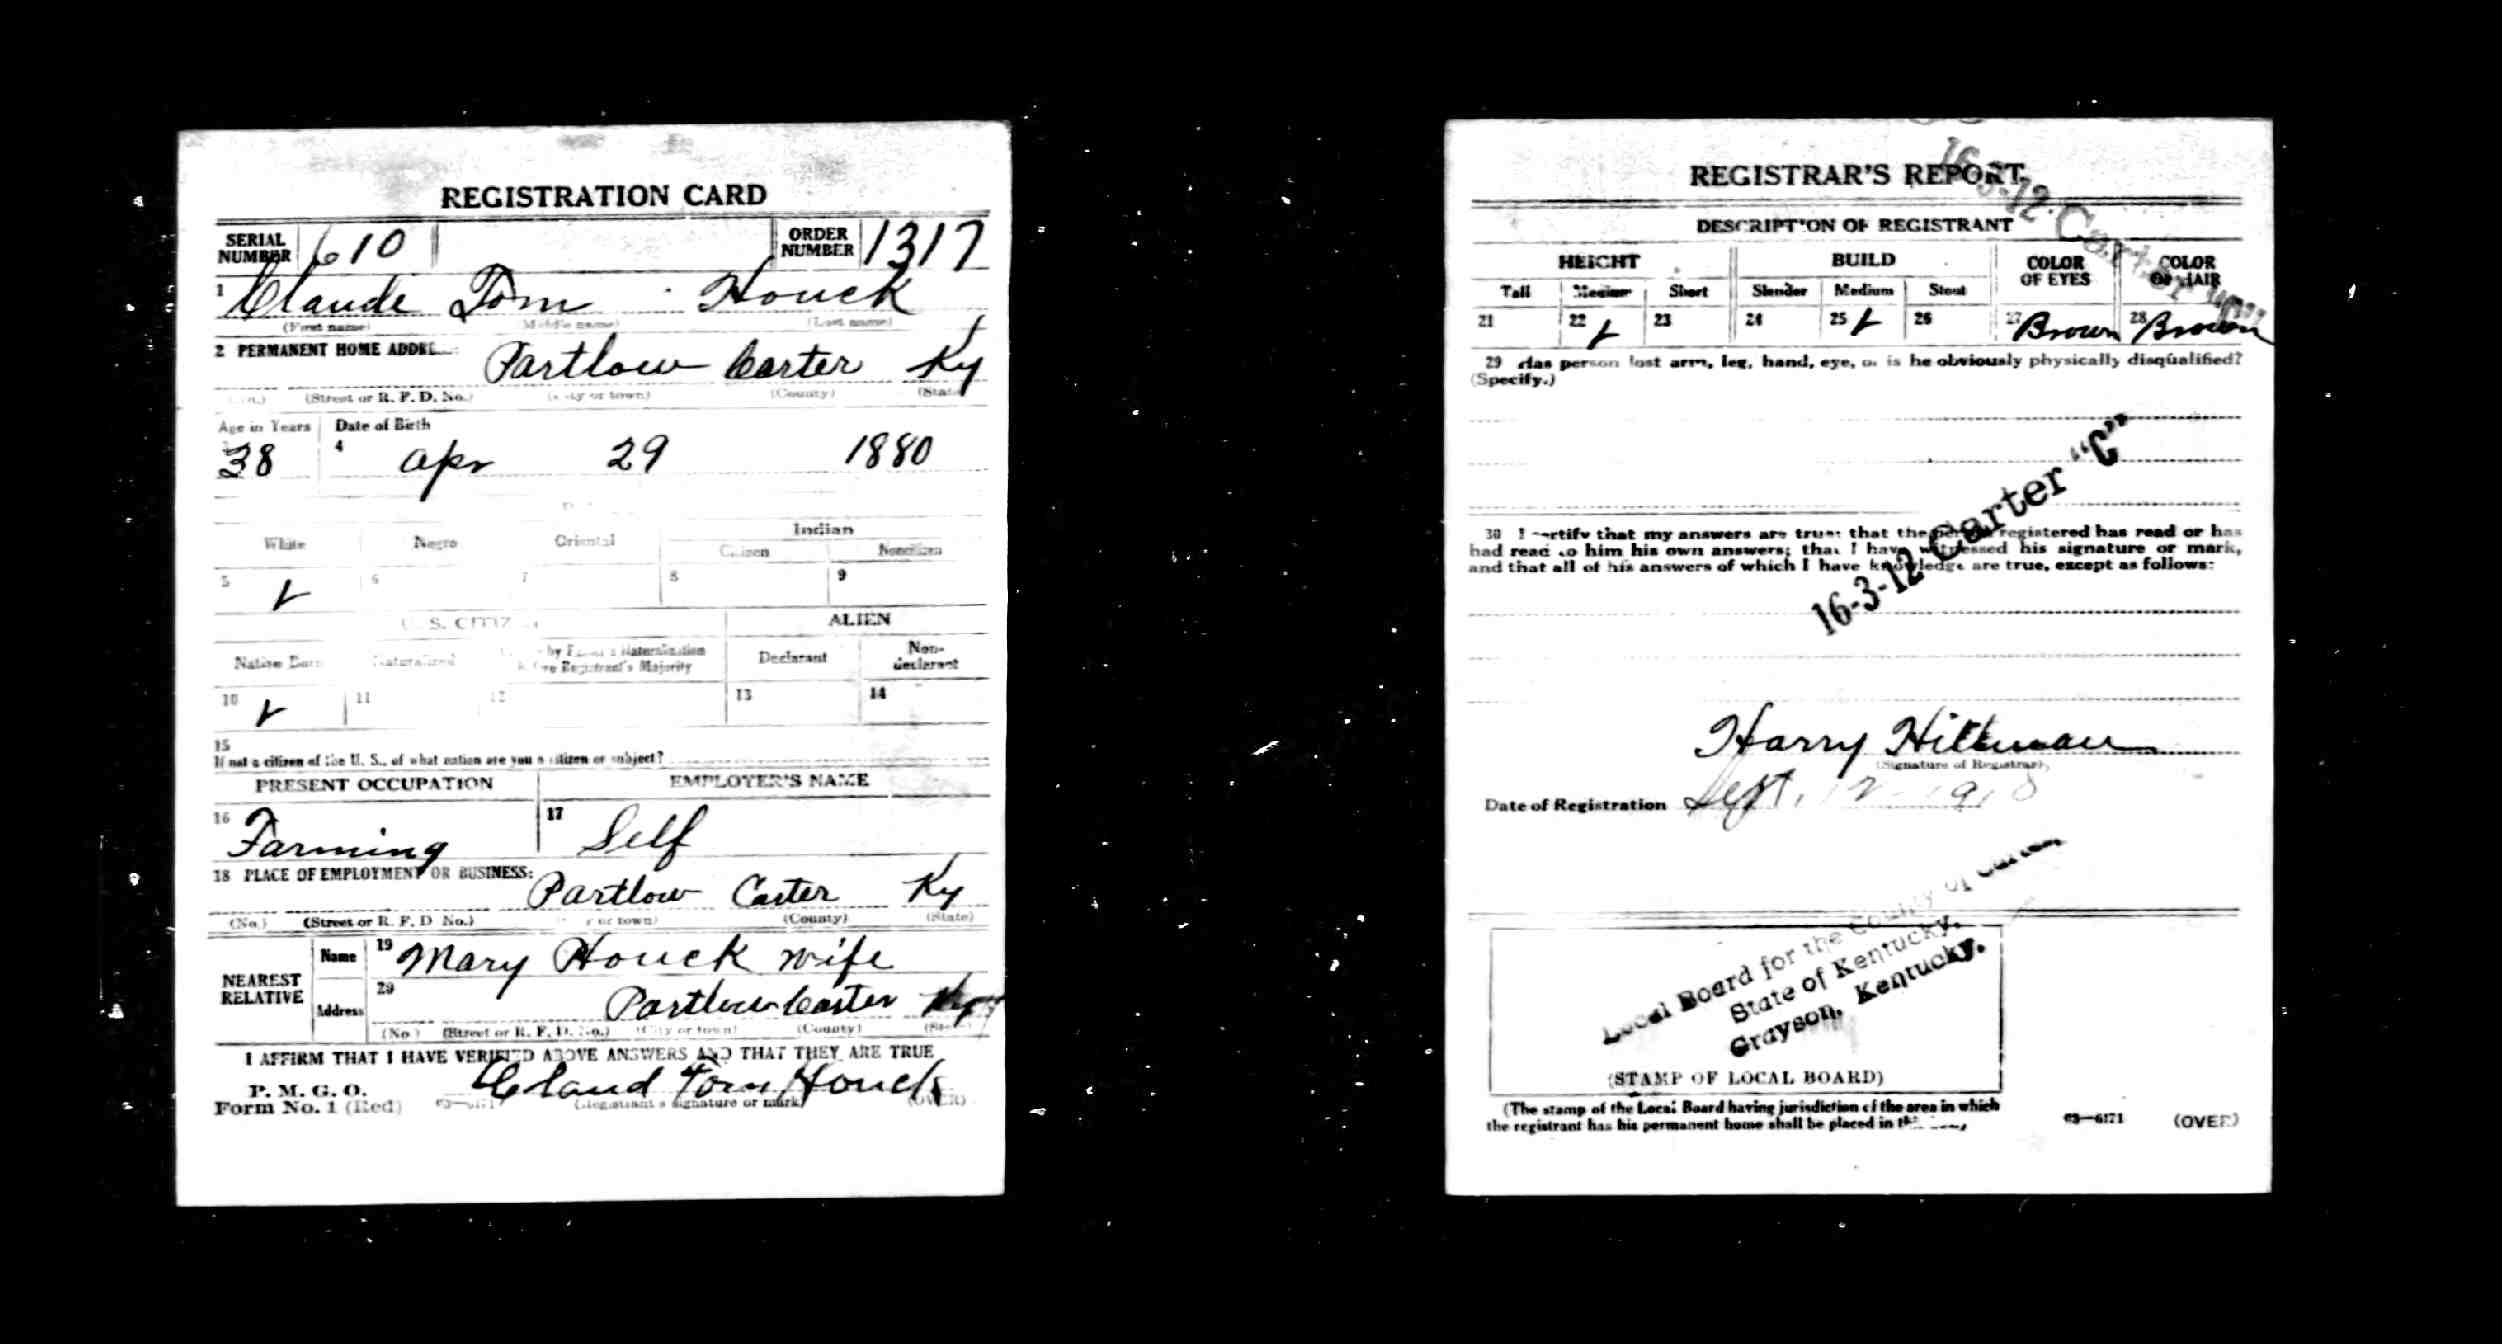 REGISTRATION CARD
SERIAL NUMBER 610 ORDER NUMBER 1317
1 Claude Tom Houck
(First name) (Middle name) (Last name)
2 PERMANENT HOME
Partlow Carter Ky
(Street or R. F. D. No.) (City or town) (County) (State)
Age in Years Date of Birth
38 4 Apr 29 1880
Indian
White Negro Oriental Citizen Noncitizen
5 ✓ 6 7 8 9
U. S. ALIEN
Native Born Naturalized by Father's Naturalization Declarant Non-
Registrant's Majority declarant
10 ✓ 11 12 13 14
15
If not a citizen of the U. S., of what nation are you a citizen or subject?
PRESENT OCCUPATION EMPLOYER'S NAME
16 Farming 17 Self
18 PLACE OF EMPLOYMENT OR BUSINESS:
Partlow Carter Ky
(No.) (Street or R. F. D. No.) or town) (County) (State)
NEAREST RELATIVE
Name 19 Mary Houck wife
Address 20 Partlow Carter Ky
(No.) (Street or R. F. D. No.) (City or town) (County) (State)
I AFFIRM THAT I HAVE VERIFIED ABOVE ANSWERS AND THAT THEY ARE TRUE
P. M. G. O.
Form No. 1 (Red)
Claud Tom Houck
(Registrant's signature or mark) (OVER)
REGISTRAR'S REPORT
16-3-12 Carter
DESCRIPTION OF REGISTRANT
HEIGHT BUILD COLOR OF EYES COLOR OF HAIR
Tall Medium Short Slender Medium Stout
21 22 ✓ 23 24 25 ✓ 26 27 Brown 28 Brown
29 Has person lost arm, leg, hand, eye, or is he obviously physically disqualified?
(Specify.)
16-3-12 Carter "C"
30 I certify that my answers are true; that the person registered has read or has
had read to him his own answers; that I have witnessed his signature or mark,
and that all of his answers of which I have knowledge are true, except as follows:
Harry
(Signature of Registrar)
Date of Registration Sept. 12 1918
Local Board for the County of Carter,
State of Kentucky.
Grayson, Kentucky.
(STAMP OF LOCAL BOARD)
(The stamp of the Local Board having jurisdiction of the area in which
the registrant has his permanent home shall be placed in
03—6171 (OVER)